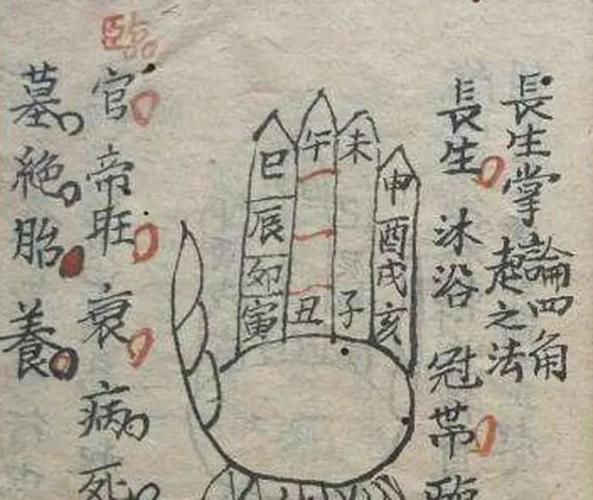 長生掌
論四角
之法
長生 沐浴 冠帯 臨
巳 午 未 申
辰 酉
卯 戌
寅 丑 子 亥
臨官 帝旺 衰 病 死
墓 絕 胎 養